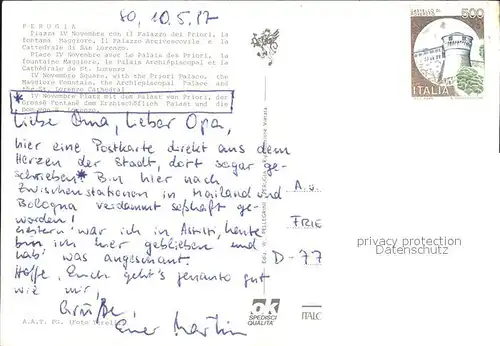 80, 10.5.87
PERUGIA
Piazza IV Novembre con il Palazzo dei Priori, la
Fontana Maggiore, il Palazzo Arcivescovile e la
Cattedrale di San Lorenzo.
Place IV Novembre avec le Palais des Priori, la
fontaine Majeure, le Palais Archiépiscopal et la
Cathédrale de St. Lorenzo
IV Novembre Square, with the Priori Palace, the
Maggiore Fountain, the Archiepiscopal Palace and
the St. Lorenzo Cathedral
* IV Novembre Platz mit dem Palast von Priori, der
Grosse Fontane dem Erzbischöflich Palast und die
Dom von S. Lorenzo.
500
ITALIA
Liebe Oma, Lieber Opa,
hier eine Postkarte direkt aus dem
Herzen der Stadt, dort sogar ge-
schrieben * Bin hier nach
Zwischenstationen in Mailand und
Bologna verdammt seßhaft ge-
worden!
Gestern war ich in Assisi, heute
bin ich hier geblieben und
hab' was angeschaut.
Hoffe, Euch geht's genauso gut
wie mir,
Grüße,
Euer Martin
A. u.
FRIE
D-77
privacy protection
Datenschutz
SPEDISCI
QUALITA'
ITALC